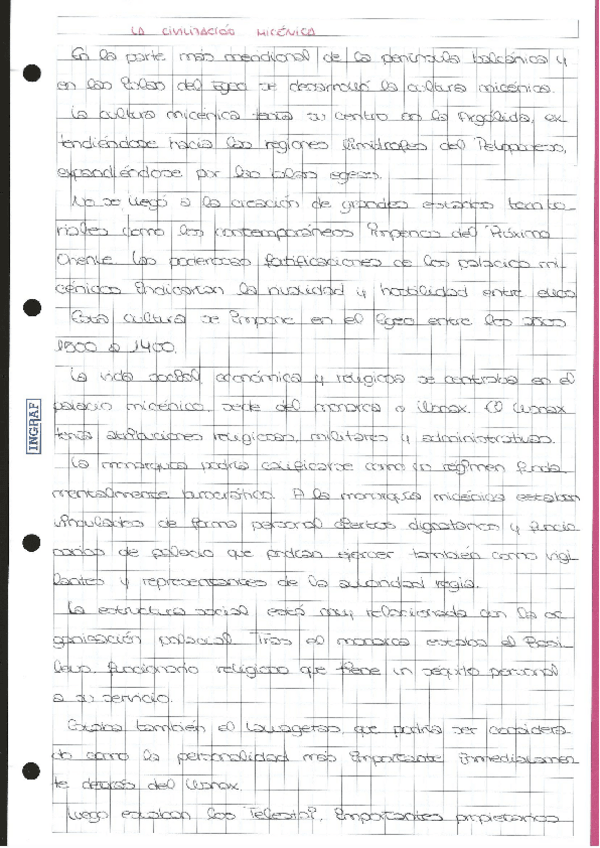 LA CIVILIZACIÓN MICÉNICA
En la parte más meridional de la península balcánica y
en las islas del egeo se desarrolló la cultura micénica.
La cultura micénica tenía su centro en la Argólida, ex
tendiéndose hacia las regiones limítrofes del Peloponeso,
expandiéndose por las islas egeas.
No se llegó a la creación de grandes estados territo
riales como los contemporáneos Imperios del Próximo
Oriente. Las poderosas fortificaciones de los palacios mi
cénicos indicarían la rivalidad y hostilidad entre ellos
Esta cultura se impone en el Egeo entre los años
1500 a 1400.
La vida social, económica y religiosa se centraba en el
palacio micénico, sede del monarca o Wanax. El Wanax
tenía atribuciones religiosas, militares y administrativas.
La monarquía podría calificarse como un régimen funda
mentalmente burocrático. A la monarquía micénica estaban
vinculados de forma personal ciertos dignatarios y funcio
narios de palacio que podían ejercer también como vigi
lantes y representantes de la autoridad regia.
La estructura social está muy relacionada con la or
ganización palacial. Tras el monarca estaba el Basi
leus, funcionario religioso que tiene un séquito personal
a su servicio.
Existía también el Lawagetas, que podría ser considera
do como la personalidad más importante inmediatamen
te detrás del Wanax.
Luego estaban los Telestai, importantes propietarios
INGRAF